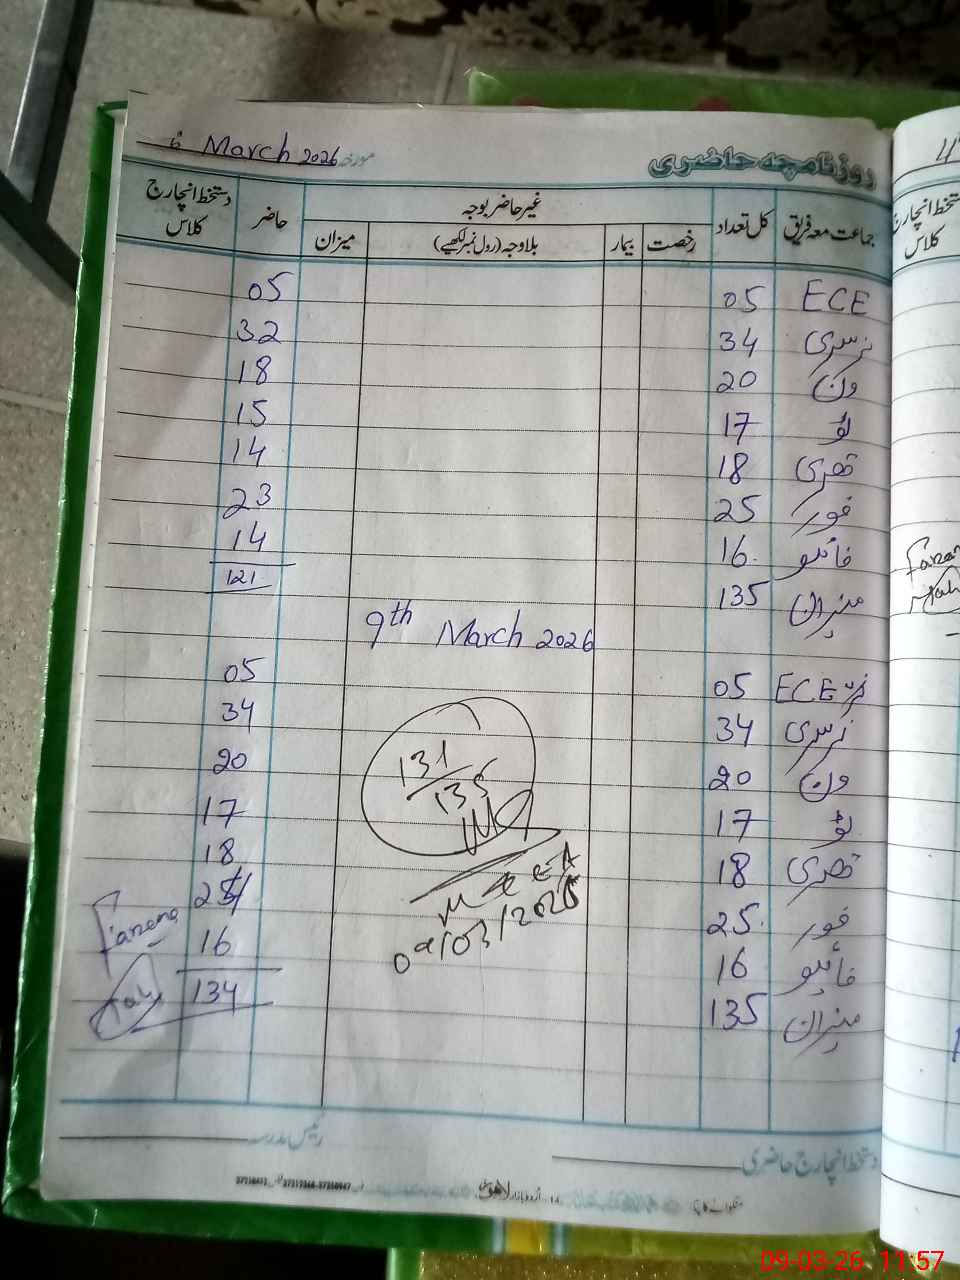 روزنامچہ حاضری مورخہ 6 March 2026
جماعت معہ فریق کل تعداد غیر حاضر بوجہ حاضر دستخط انچارج کلاس
رخصت بیمار بلاوجہ (رول نمبر لکھیے) میزان
ECE 05 05
نرسری 34 32
ون 20 18
ٹو 17 15
تھری 18 14
فور 25 23
فائیو 16 14
میزان 135 121
9th March 2026
ECE 05 05
نرسری 34 34
ون 20 20
ٹو 17 17
تھری 18 18
فور 25
فائیو 16 16
میزان 135 134
131/135
MEEA
09/03/2026
Farzana
دستخط انچارج حاضری رئیس مدرسہ
اردو بازار لاہور
دستخط انچارج
کلاس
09-03-26 11:57